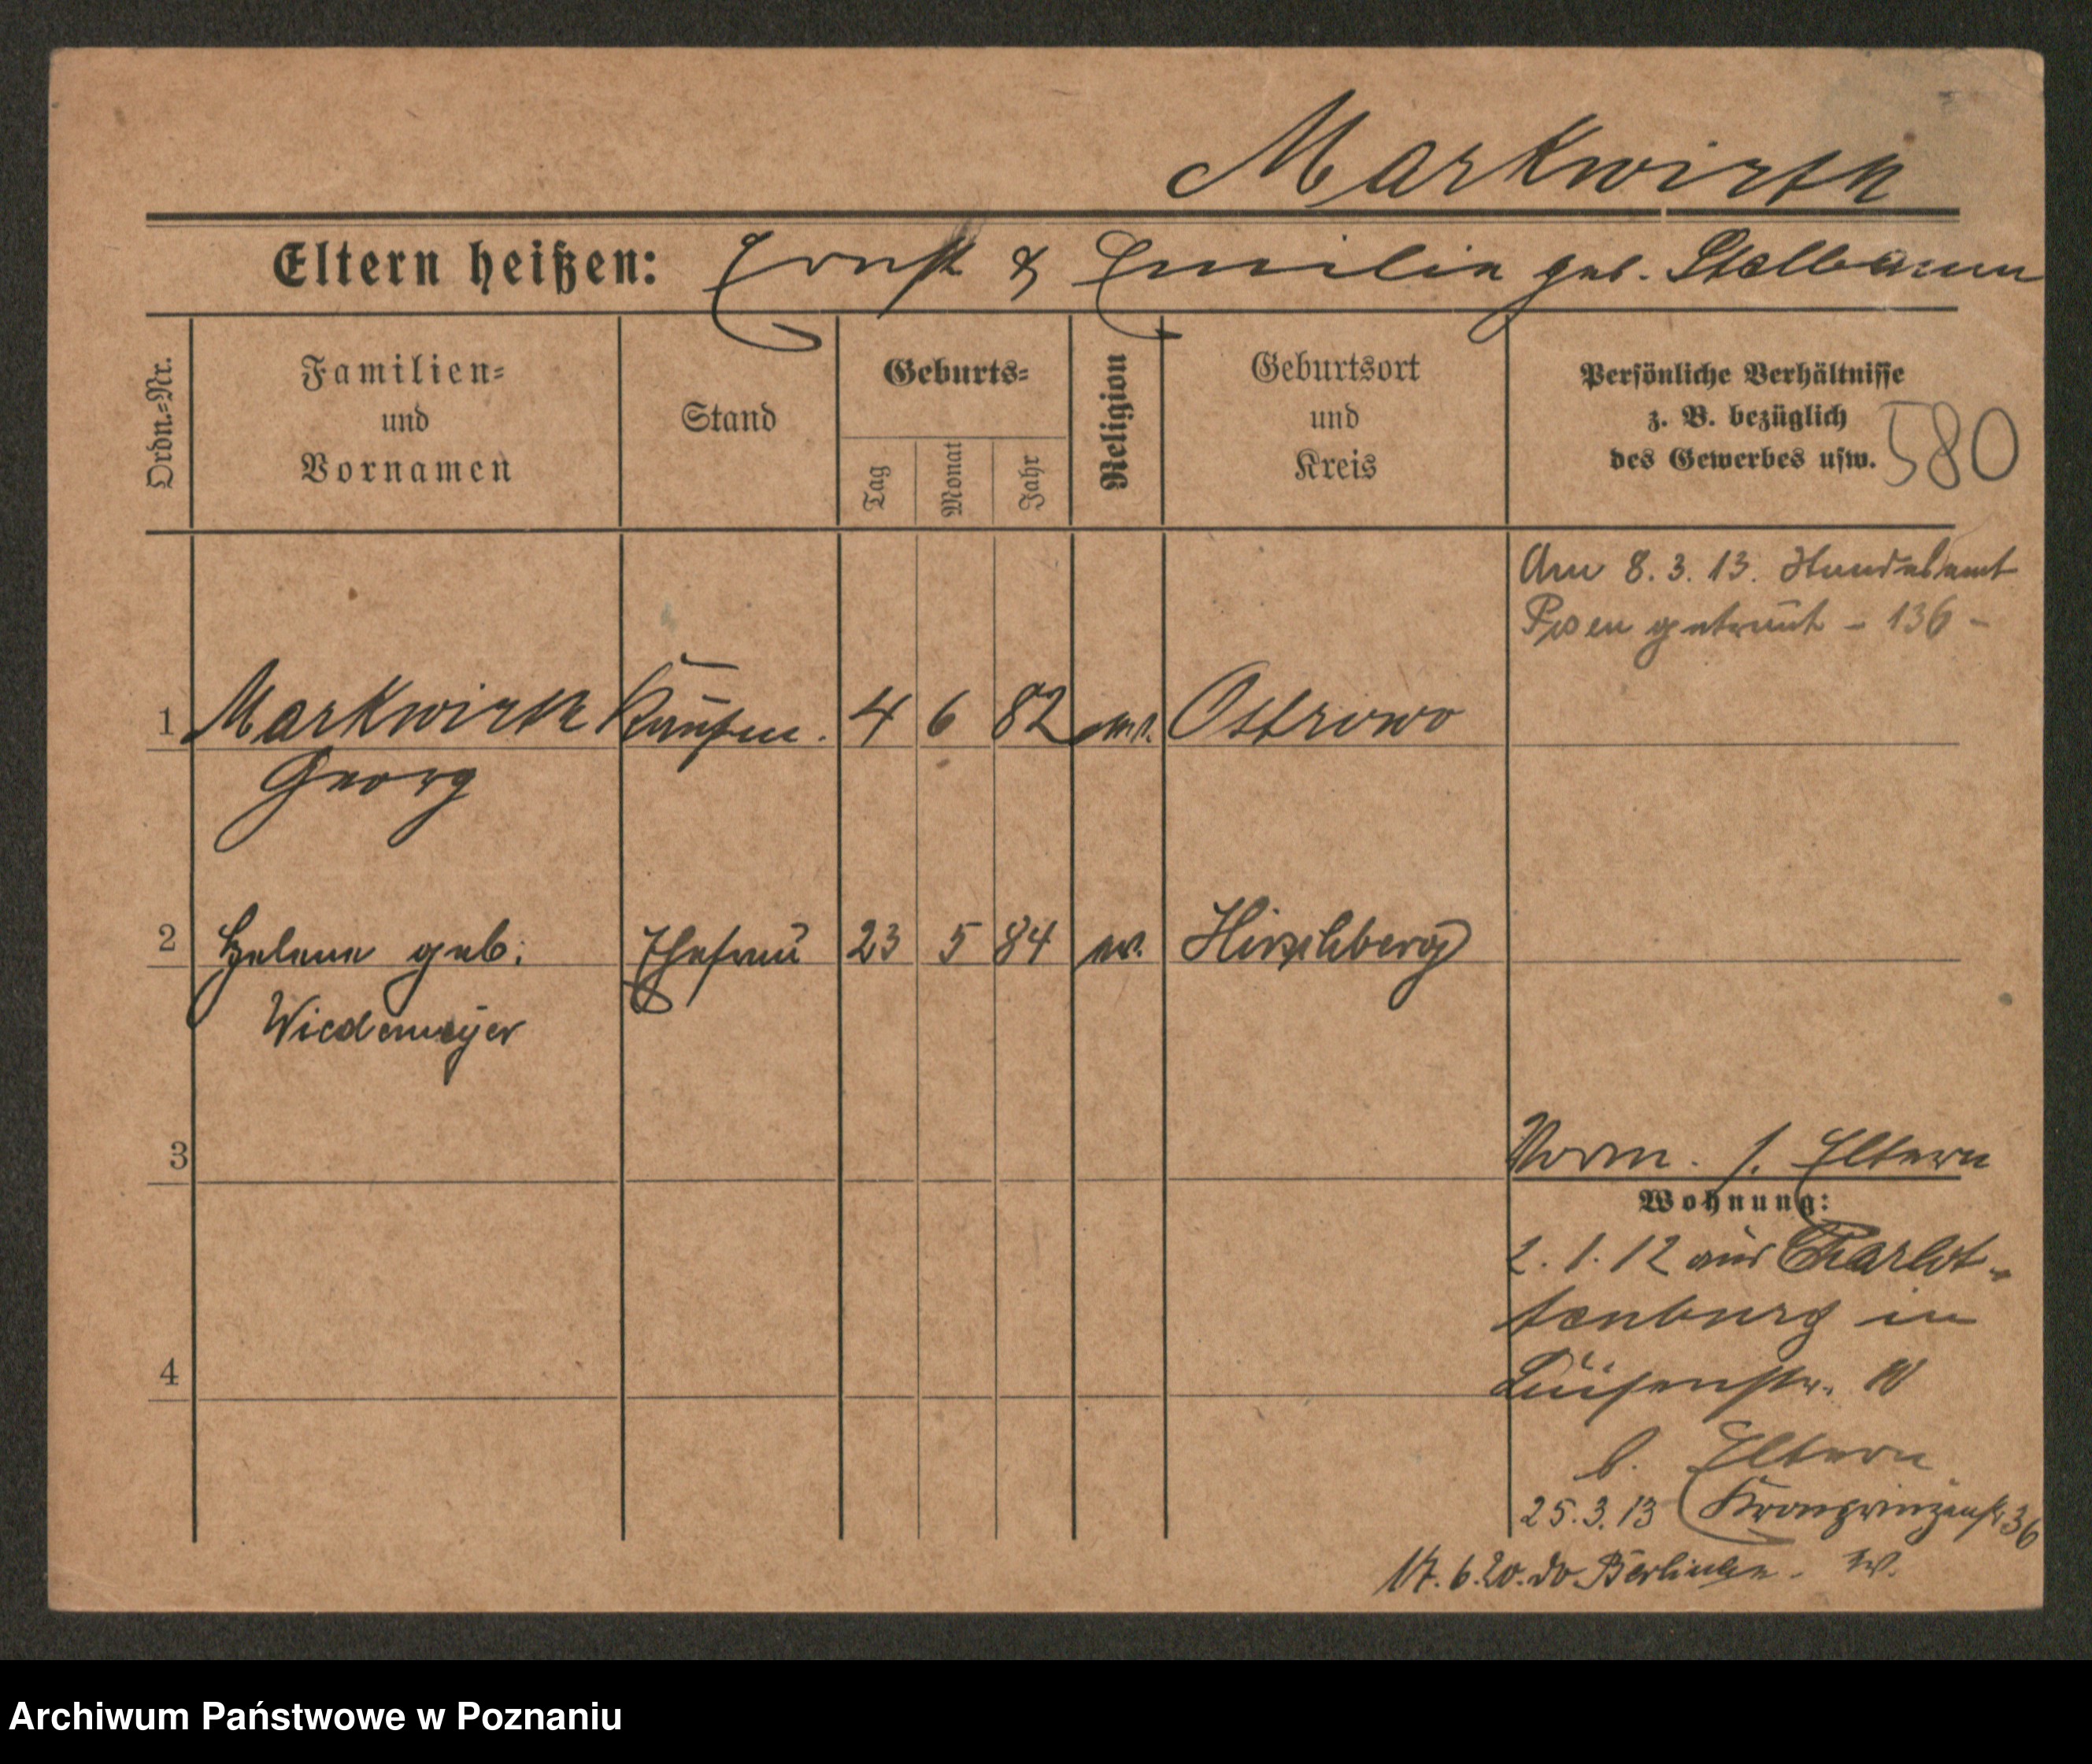 Markwirth
Eltern heißen: Ernst & Emilie geb. Stellbaum
Ordn.=Nr.
Familien=
und
Vornamen
Stand
Geburts=
Tag
Monat
Jahr
Religion
Geburtsort
und
Kreis
Persönliche Verhältnisse
z. B. bezüglich
des Gewerbes usw.
580
Am 8.3.13. Standesamt
Posen getraut - 136 -
1 Markwirth Kaufm. 4 6 82 ev. Ostrowo
Georg
2 Helene geb. Ehefrau 23 5 84 ev. Hirschberg
Wiedemeyer
3
Vorm. s. Eltern
Wohnung:
2.1.12 aus Charlot-
tenburg in
4
Luisenstr. 10
b. Eltern
25.3.13 Kronprinzenstr 36
17.6.20. do
Archiwum Państwowe w Poznaniu